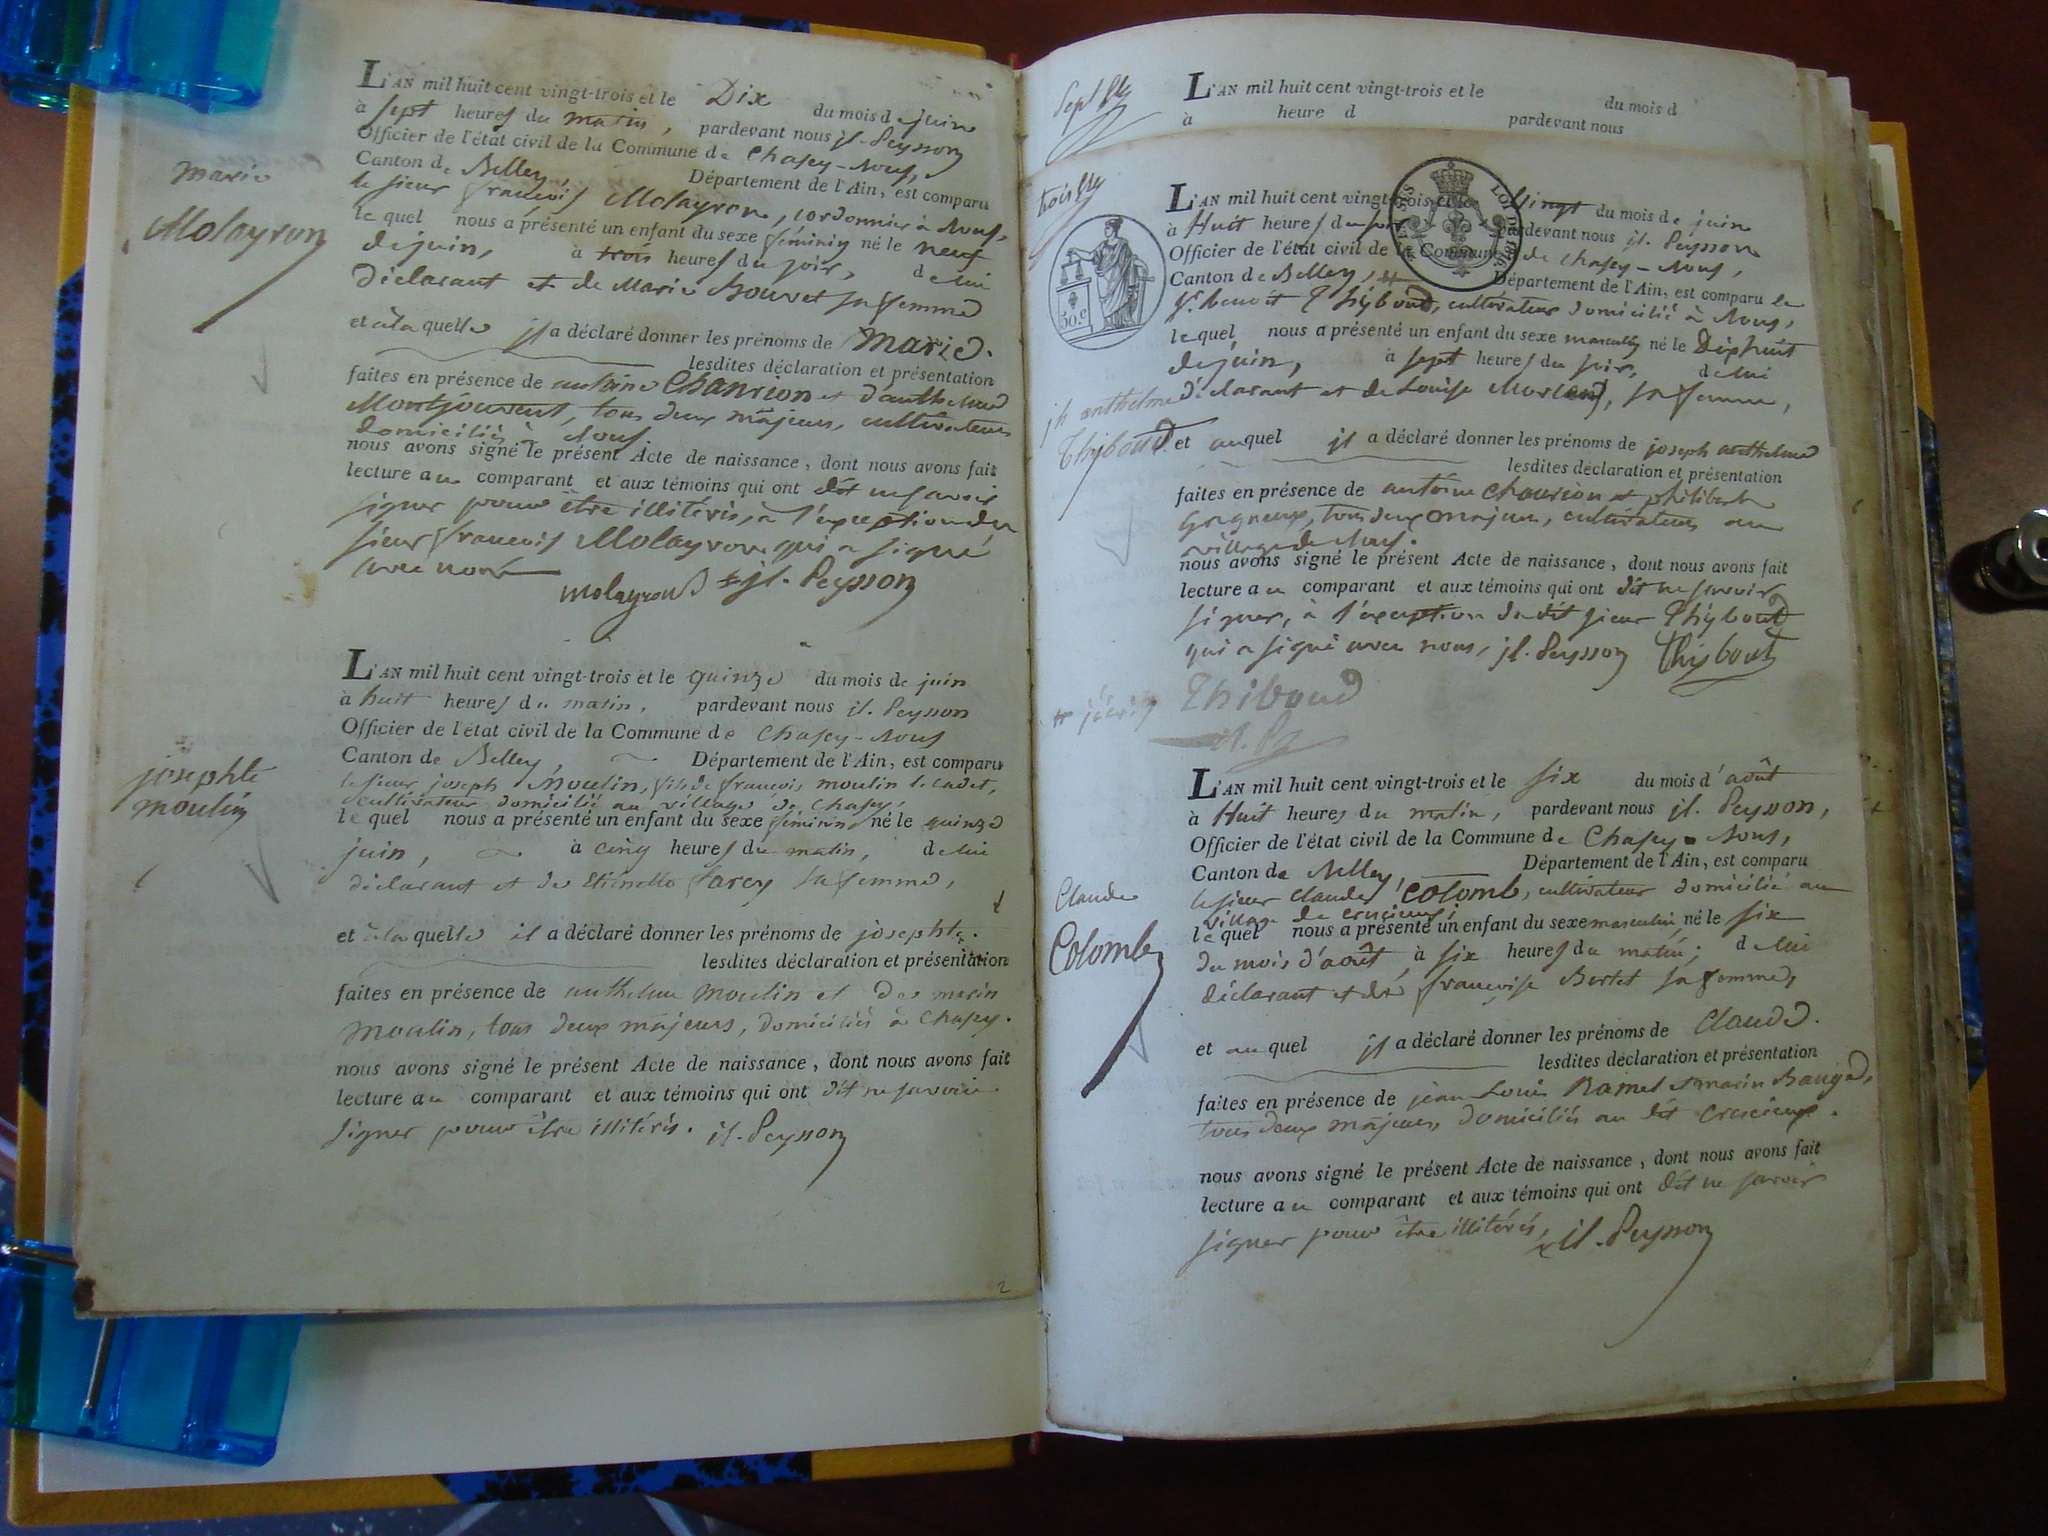 L'AN mil huit cent vingt-trois et le Dix du mois de juin
à sept heures du matin, pardevant nous jl. Peysson
Officier de l'état civil de la Commune de Chasey-Nous,
Canton de Belley, Département de l'Ain, est comparu
le sieur françois Molayron, cordonnier à Nous,
le quel nous a présenté un enfant du sexe féminin né le neuf
de juin, à trois heures du soir, de lui
Déclarant et de Marie Bouvet sa femme
et à la quelle jl a déclaré donner les prénoms de Marie.
lesdites déclaration et présentation
faites en présence de antoine Chanrion et d'anthelme
Montjouvent, tous deux majeurs, cultivateurs
domiciliés à Nous
nous avons signé le présent Acte de naissance, dont nous avons fait
lecture au comparant et aux témoins qui ont dit ne savoir
signer pour être illitérés, à l'exception du
sieur françois Molayron qui a signé
avec nous
molayron jl. Peysson
marie
Molayron
L'AN mil huit cent vingt-trois et le quinze du mois de juin
à huit heures du matin, pardevant nous jl. Peysson
Officier de l'état civil de la Commune de Chasey-Nous
Canton de Belley, Département de l'Ain, est comparu
le sieur joseph Moulin, fils de françois moulin le cadet,
cultivateur domicilié au village de Chasey,
le quel nous a présenté un enfant du sexe féminin né le quinze
juin, à cinq heures du matin, de lui
déclarant et de Etiennette farcy sa femme,
et à la quelle il a déclaré donner les prénoms de josephte.
lesdites déclaration et présentation
faites en présence de anthelme Moulin et de marin
moulin, tous deux majeurs, domiciliés à Chasey.
nous avons signé le présent Acte de naissance, dont nous avons fait
lecture au comparant et aux témoins qui ont dit ne savoir
signer pour être illitérés. jl. Peysson
josephte
moulin
2
L'AN mil huit cent vingt-trois et le du mois d
à heure d pardevant nous
L'AN mil huit cent vingt-trois et le Vingt du mois de juin
à Huit heures du soir pardevant nous jl. Peysson
Officier de l'état civil de la Commune de Chasey-Nous,
Canton de Belley, Département de l'Ain, est comparu le
Sr. benoit Thiboud, cultivateur domicilié à Nous,
le quel nous a présenté un enfant du sexe masculin né le Dixhuit
de juin, à sept heures du soir, de lui
déclarant et de Louise Morland, sa femme,
et auquel jl a déclaré donner les prénoms de joseph anthelme
lesdites déclaration et présentation
faites en présence de antoine chanrion et philibert
Gagneux, tous deux majeurs, cultivateurs au
village de Nous.
nous avons signé le présent Acte de naissance, dont nous avons fait
lecture au comparant et aux témoins qui ont dit ne savoir
signer, à l'exception dudit sieur Thyboud
qui a signé avec nous, jl. Peysson Thyboud
Thiboud
jh anthelme
Thyboud
50.c
L'AN mil huit cent vingt-trois et le six du mois d'août
à Huit heures du matin, pardevant nous jl. Peysson,
Officier de l'état civil de la Commune de Chasey-Nous,
Canton de Belley, Département de l'Ain, est comparu
le sieur Claude Colomb, cultivateur domicilié au
village de crucieux;
le quel nous a présenté un enfant du sexe masculin, né le six
du mois d'août, à six heures du matin; de lui
déclarant et de françoise Bertet sa femme,
et au quel jl a déclaré donner les prénoms de Claude.
lesdites déclaration et présentation
faites en présence de jean Louis Ramel et marin Baugé,
tous deux majeurs domiciliés au dit crucieux.
nous avons signé le présent Acte de naissance, dont nous avons fait
lecture au comparant et aux témoins qui ont dit ne savoir
signer pour être illitérés, jl. Peysson
Claude
Colomb